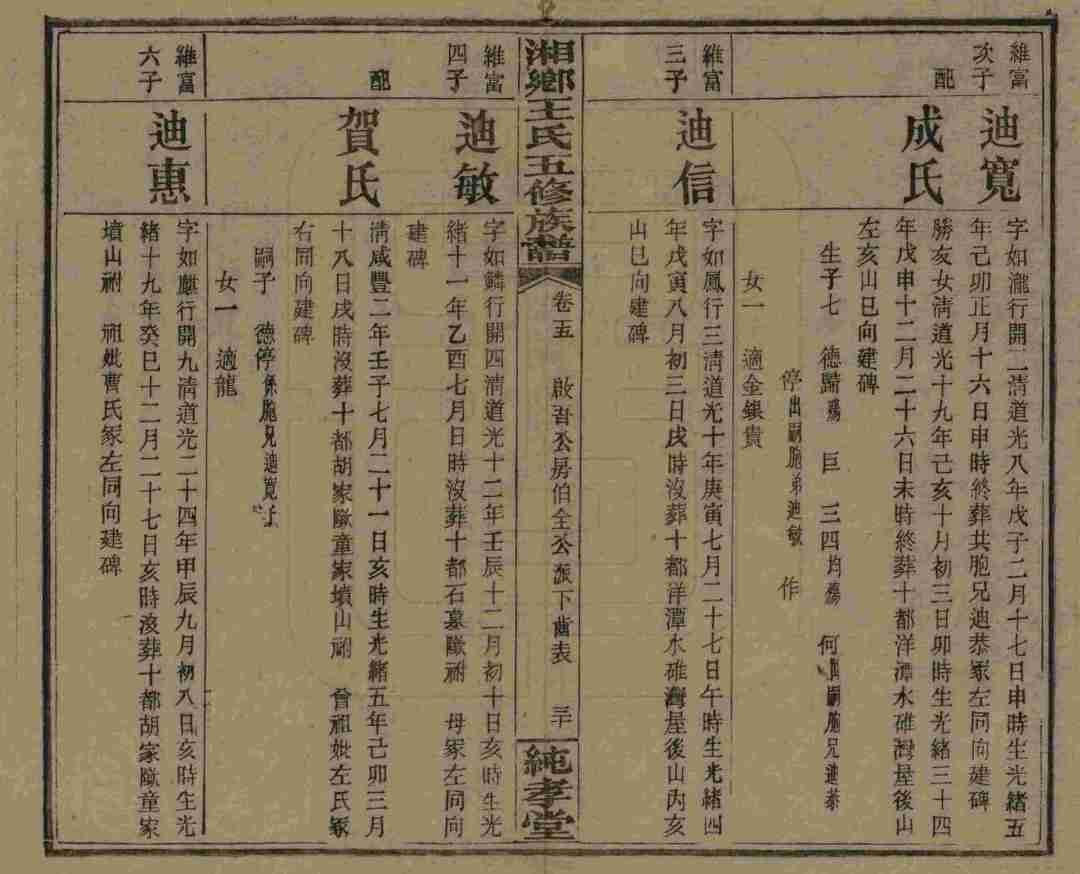 維富
次子
迪寬
字如瀧行開二淸道光八年戊子二月十七日申時生光緖五
年己卯正月十六日申時終葬共胞兄迪恭冢左同向建碑
配
成氏
勝亥女淸道光十九年己亥十月初三日卯時生光緖三十四
年戊申十二月二十六日未時終葬十都洋潭水碓灣屋後山
左亥山巳向建碑
生子七 德歸殤 巨 三四均殤 何出嗣胞兄迪恭
停出嗣胞弟迪敏 作
女一 適金銀貴
維富
三子
迪信
字如鳳行三淸道光十年庚寅七月二十七日午時生光緖四
年戊寅八月初三日戌時沒葬十都洋潭水碓灣屋後山內亥
山巳向建碑
湘鄉王氏五修族譜
卷五 啟吾公房伯全公派下齒表 三十
純孝堂
維富
四子
迪敏
字如鱗行開四淸道光十二年壬辰十二月初十日亥時生光
緖十一年乙酉七月日時沒葬十都石墓墩祔 母冢左同向
建碑
配
賀氏
淸咸豐二年壬子七月二十一日亥時生光緖五年己卯三月
十八日戌時沒葬十都胡家墩童家墳山祔 曾祖妣左氏冢
右同向建碑
嗣子 德停係胞兄迪寬子
女一 適龍
維富
六子
迪惠
字如麒行開九淸道光二十四年甲辰九月初八日亥時生光
緖十九年癸巳十二月二十七日亥時沒葬十都胡家墩童家
墳山祔 祖妣曹氏冢左同向建碑